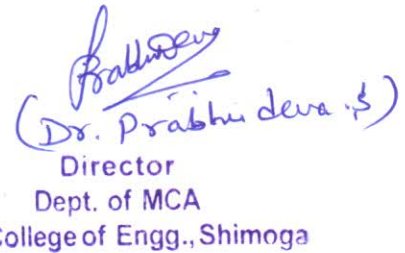 Prabhudeva
(Dr. Prabhu deva .S)
Director
Dept. of MCA
College of Engg., Shimoga